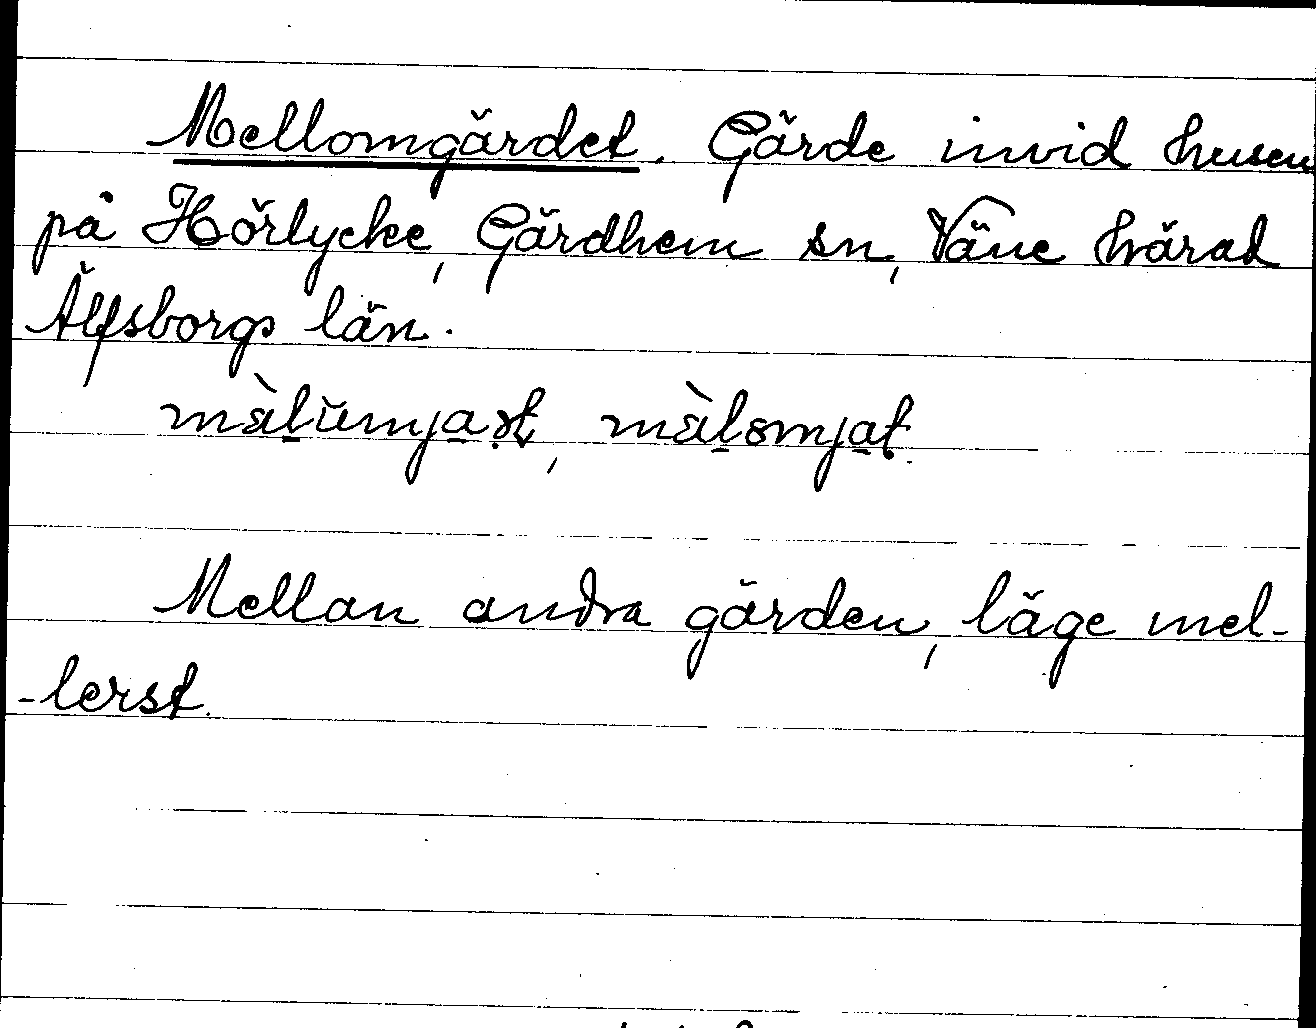 Mellomgärdet. Gärde invid husen
på Hörlycke, Gärdhem sn, Väne härad
Älfsborgs län.
mä̀lŭmjaṣt, mä̀lomjat.
Mellan andra gärden, läge mel-
-lerst.